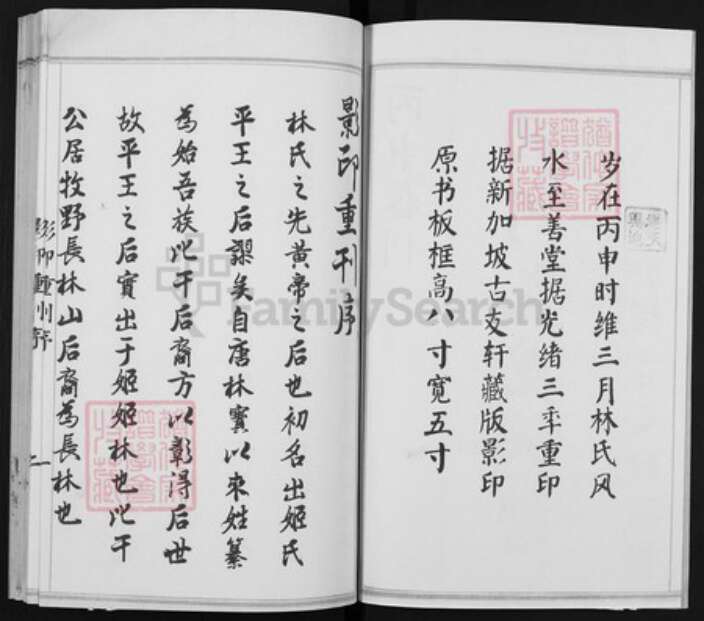 岁在丙申时维三月林氏风
水至善堂据光绪三年重印
据新加坡古友轩藏版影印
原书板框高八寸宽五寸
影印重刊序
林氏之先黄帝之后也初名出姬氏
平王之后謬矣自唐林寳以來姓纂
為始吾族比干后裔方以彰淂后世
故平王之后實出于姬姬林也比干
公居牧野長林山后裔為長林也
影印重刊序
二
FamilySearch